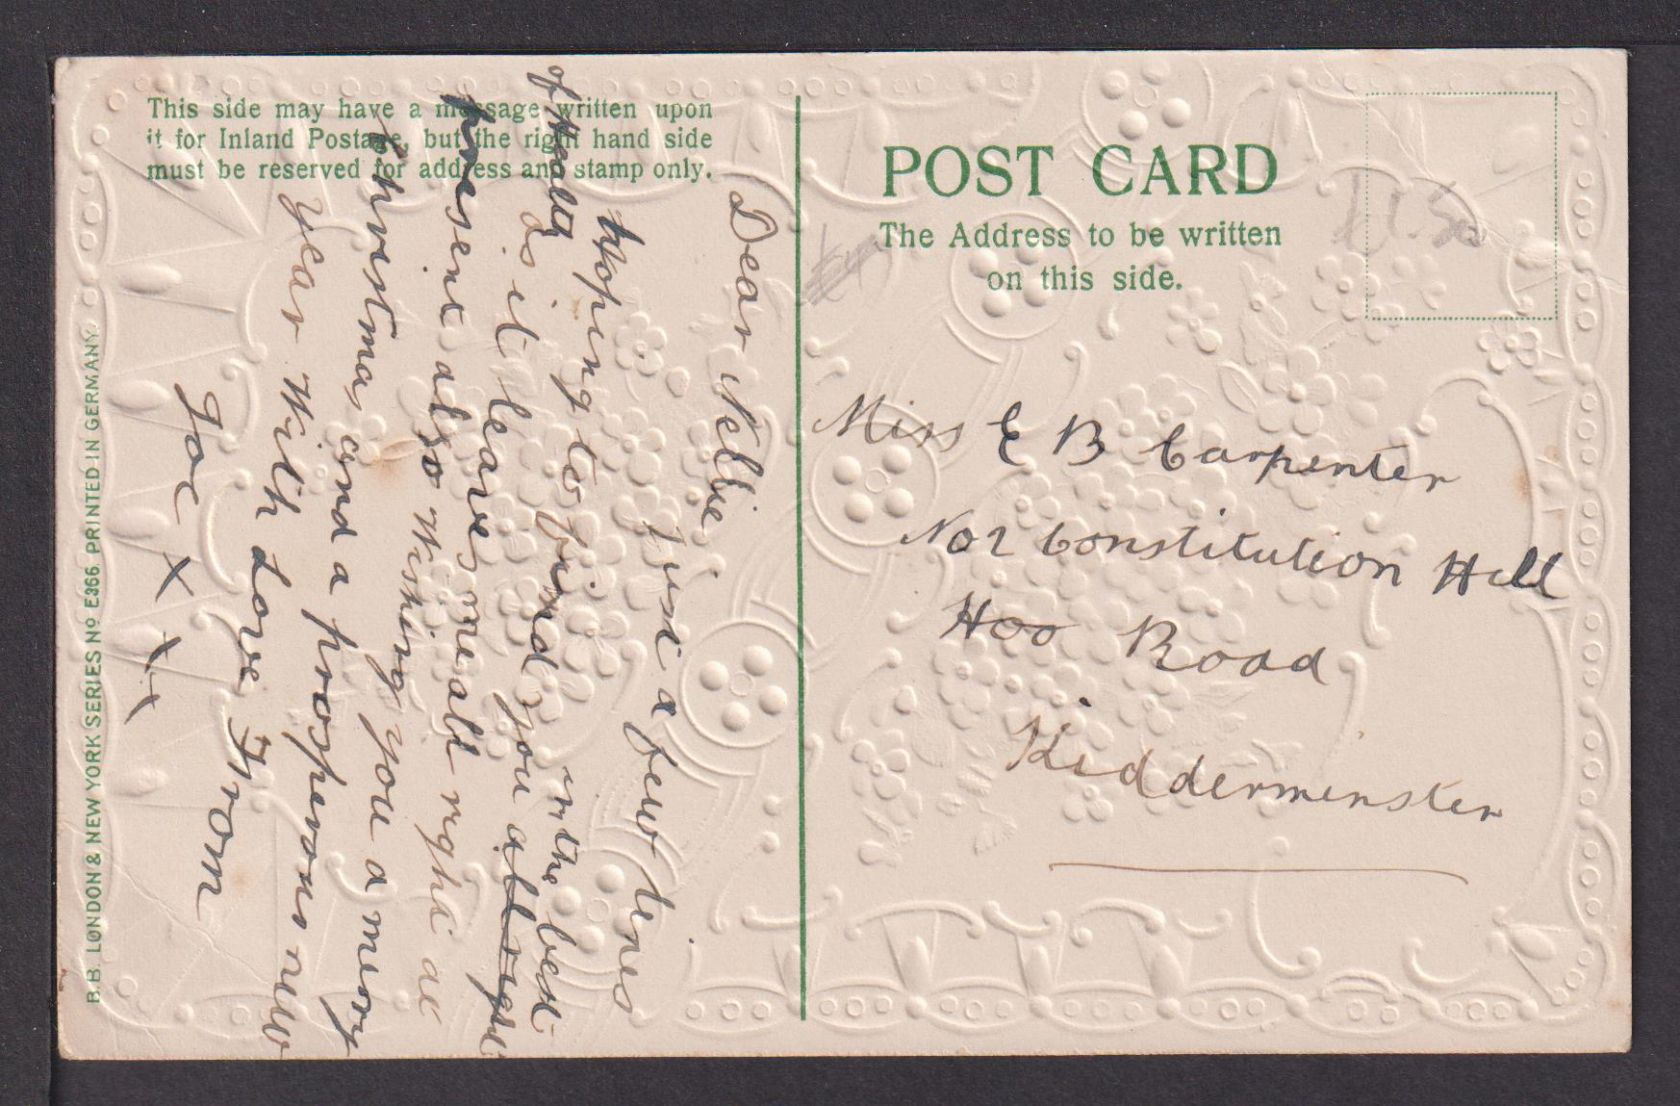 This side may have a message written upon
it for Inland Postage, but the right hand side
must be reserved for address and stamp only.
POST CARD
The Address to be written
on this side.
B.B. LONDON & NEW YORK SERIES No E366 PRINTED IN GERMANY.
Dear Nellie
Just a few lines
hoping to find you all right
in the best
of Health
as it leaves me all right at
present also Wishing you a merry
christmas and a prosperous new
year With Love From
Joe X X X
Miss E B Carpenter
No 2 Constitution Hill
Hoo Road
Kidderminster